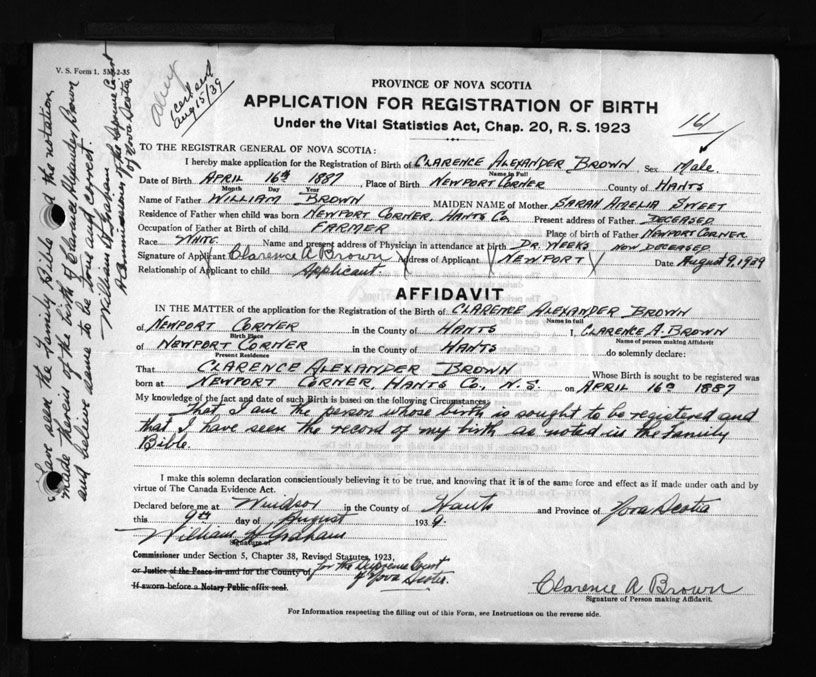 V. S. Form 1. 5M-2-35
cert sent
Aug 15/39
I have seen the family Bible and the notation
made therein of the birth of Clarence Alexander Brown
and believe same to be true and correct.
William H Graham
A Commissioner of the Supreme Court
of Nova Scotia
PROVINCE OF NOVA SCOTIA
APPLICATION FOR REGISTRATION OF BIRTH
Under the Vital Statistics Act, Chap. 20, R. S. 1923
TO THE REGISTRAR GENERAL OF NOVA SCOTIA:
I hereby make application for the Registration of Birth of CLARENCE ALEXANDER BROWN, Sex Male.
Name in Full
Date of Birth APRIL 16th 1887, Place of Birth NEWPORT CORNER County of HANTS
Month Day Year
Name of Father WILLIAM BROWN MAIDEN NAME of Mother SARAH AMELIA SWEET
Residence of Father when child was born NEWPORT CORNER, HANTS Co. Present address of Father DECEASED
Occupation of Father at Birth of child FARMER Place of birth of Father NEWPORT CORNER
Race WHITE Name and present address of Physician in attendance at birth DR. WEEKS NOW DECEASED
Signature of Applicant Clarence A Brown Address of Applicant NEWPORT Date August 9, 1939
Relationship of Applicant to child Applicant.
AFFIDAVIT
IN THE MATTER of the application for the Registration of the Birth of CLARENCE ALEXANDER BROWN
Name in full
of NEWPORT CORNER in the County of HANTS I, CLARENCE A. BROWN
Birth Place Name of person making Affidavit
of NEWPORT CORNER in the County of HANTS do solemnly declare:
Present Residence
That CLARENCE ALEXANDER BROWN Whose Birth is sought to be registered was
born at NEWPORT CORNER, HANTS Co., N. S. on APRIL 16th 1887
My knowledge of the fact and date of such Birth is based on the following Circumstances:
That I am the person whose birth is sought to be registered and
that I have seen the record of my birth as noted in the Family
Bible.
I make this solemn declaration conscientiously believing it to be true, and knowing that it is of the same force and effect as if made under oath and by
virtue of The Canada Evidence Act.
Declared before me at Windsor in the County of Hants and Province of Nova Scotia
this 9th day of August 1939.
William H Graham
Signature of
Commissioner under Section 5, Chapter 38, Revised Statutes, 1923,
or Justice of the Peace in and for the County of for the Supreme Court
of Nova Scotia.
If sworn before a Notary Public affix seal.
Clarence A Brown
Signature of Person making Affidavit.
For Information respecting the filling out of this Form, see Instructions on the reverse side.